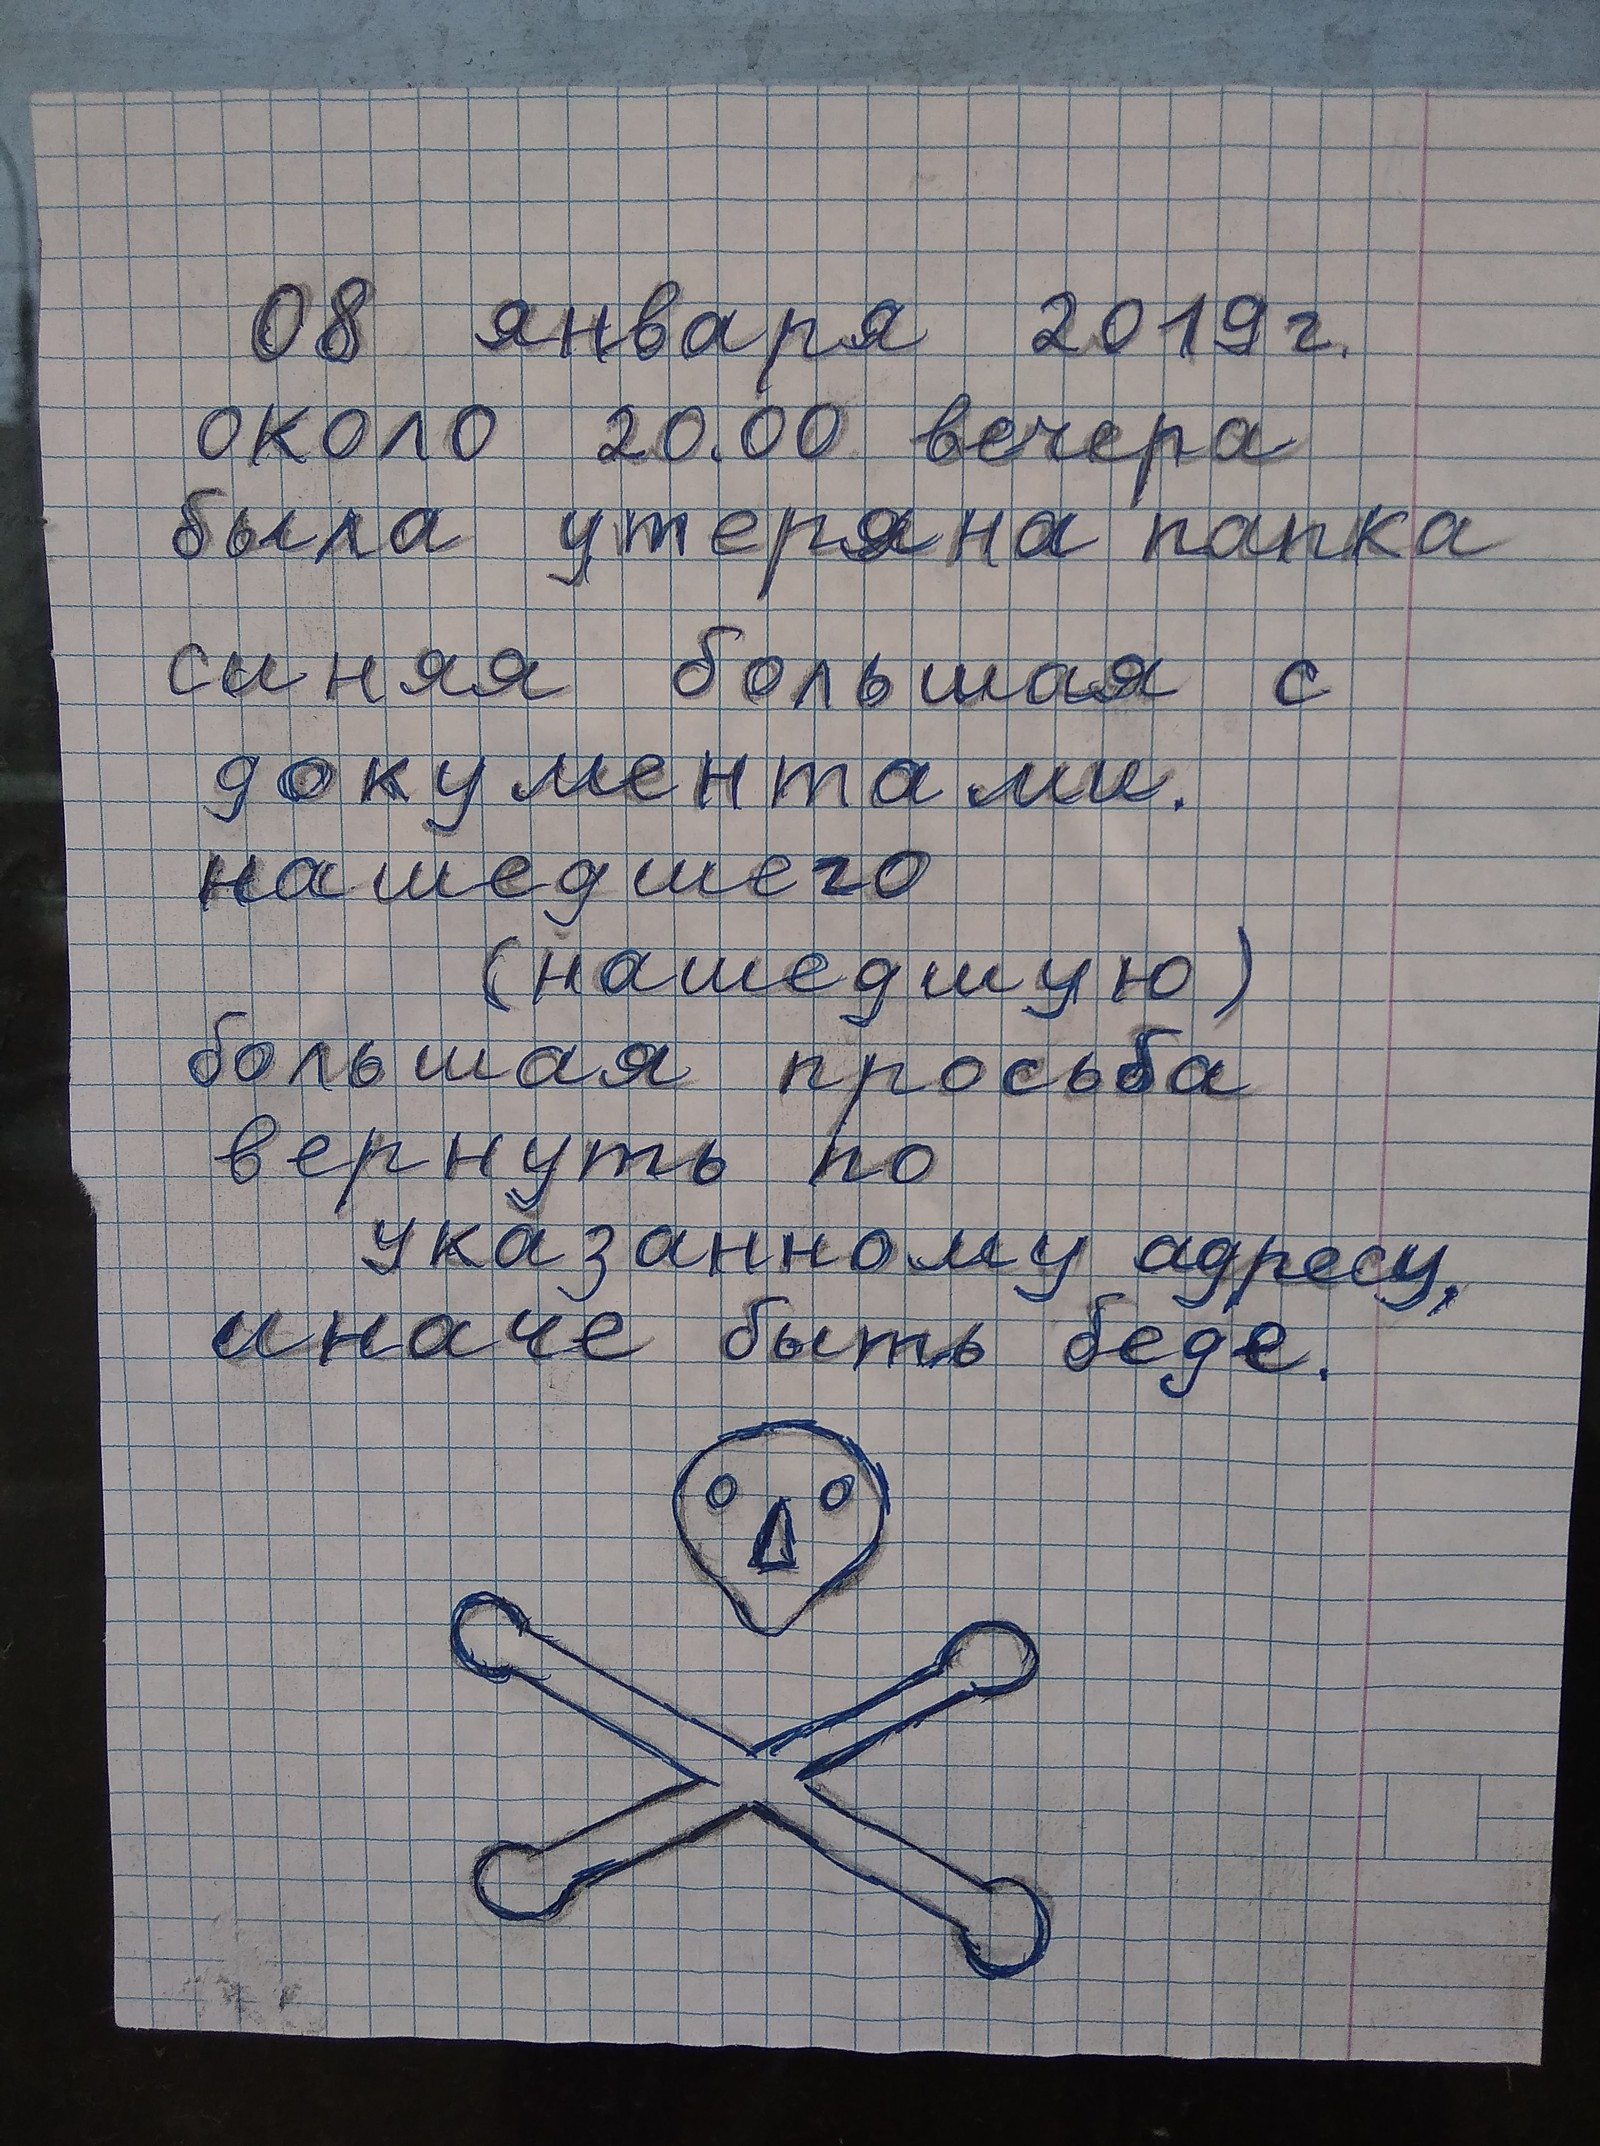 08 января 2019г.
около 20.00 вечера
была утеряна папка
синяя большая с
документами.
нашедшего
(нашедшую)
большая просьба
вернуть по
указанному адресу,
иначе быть беде.